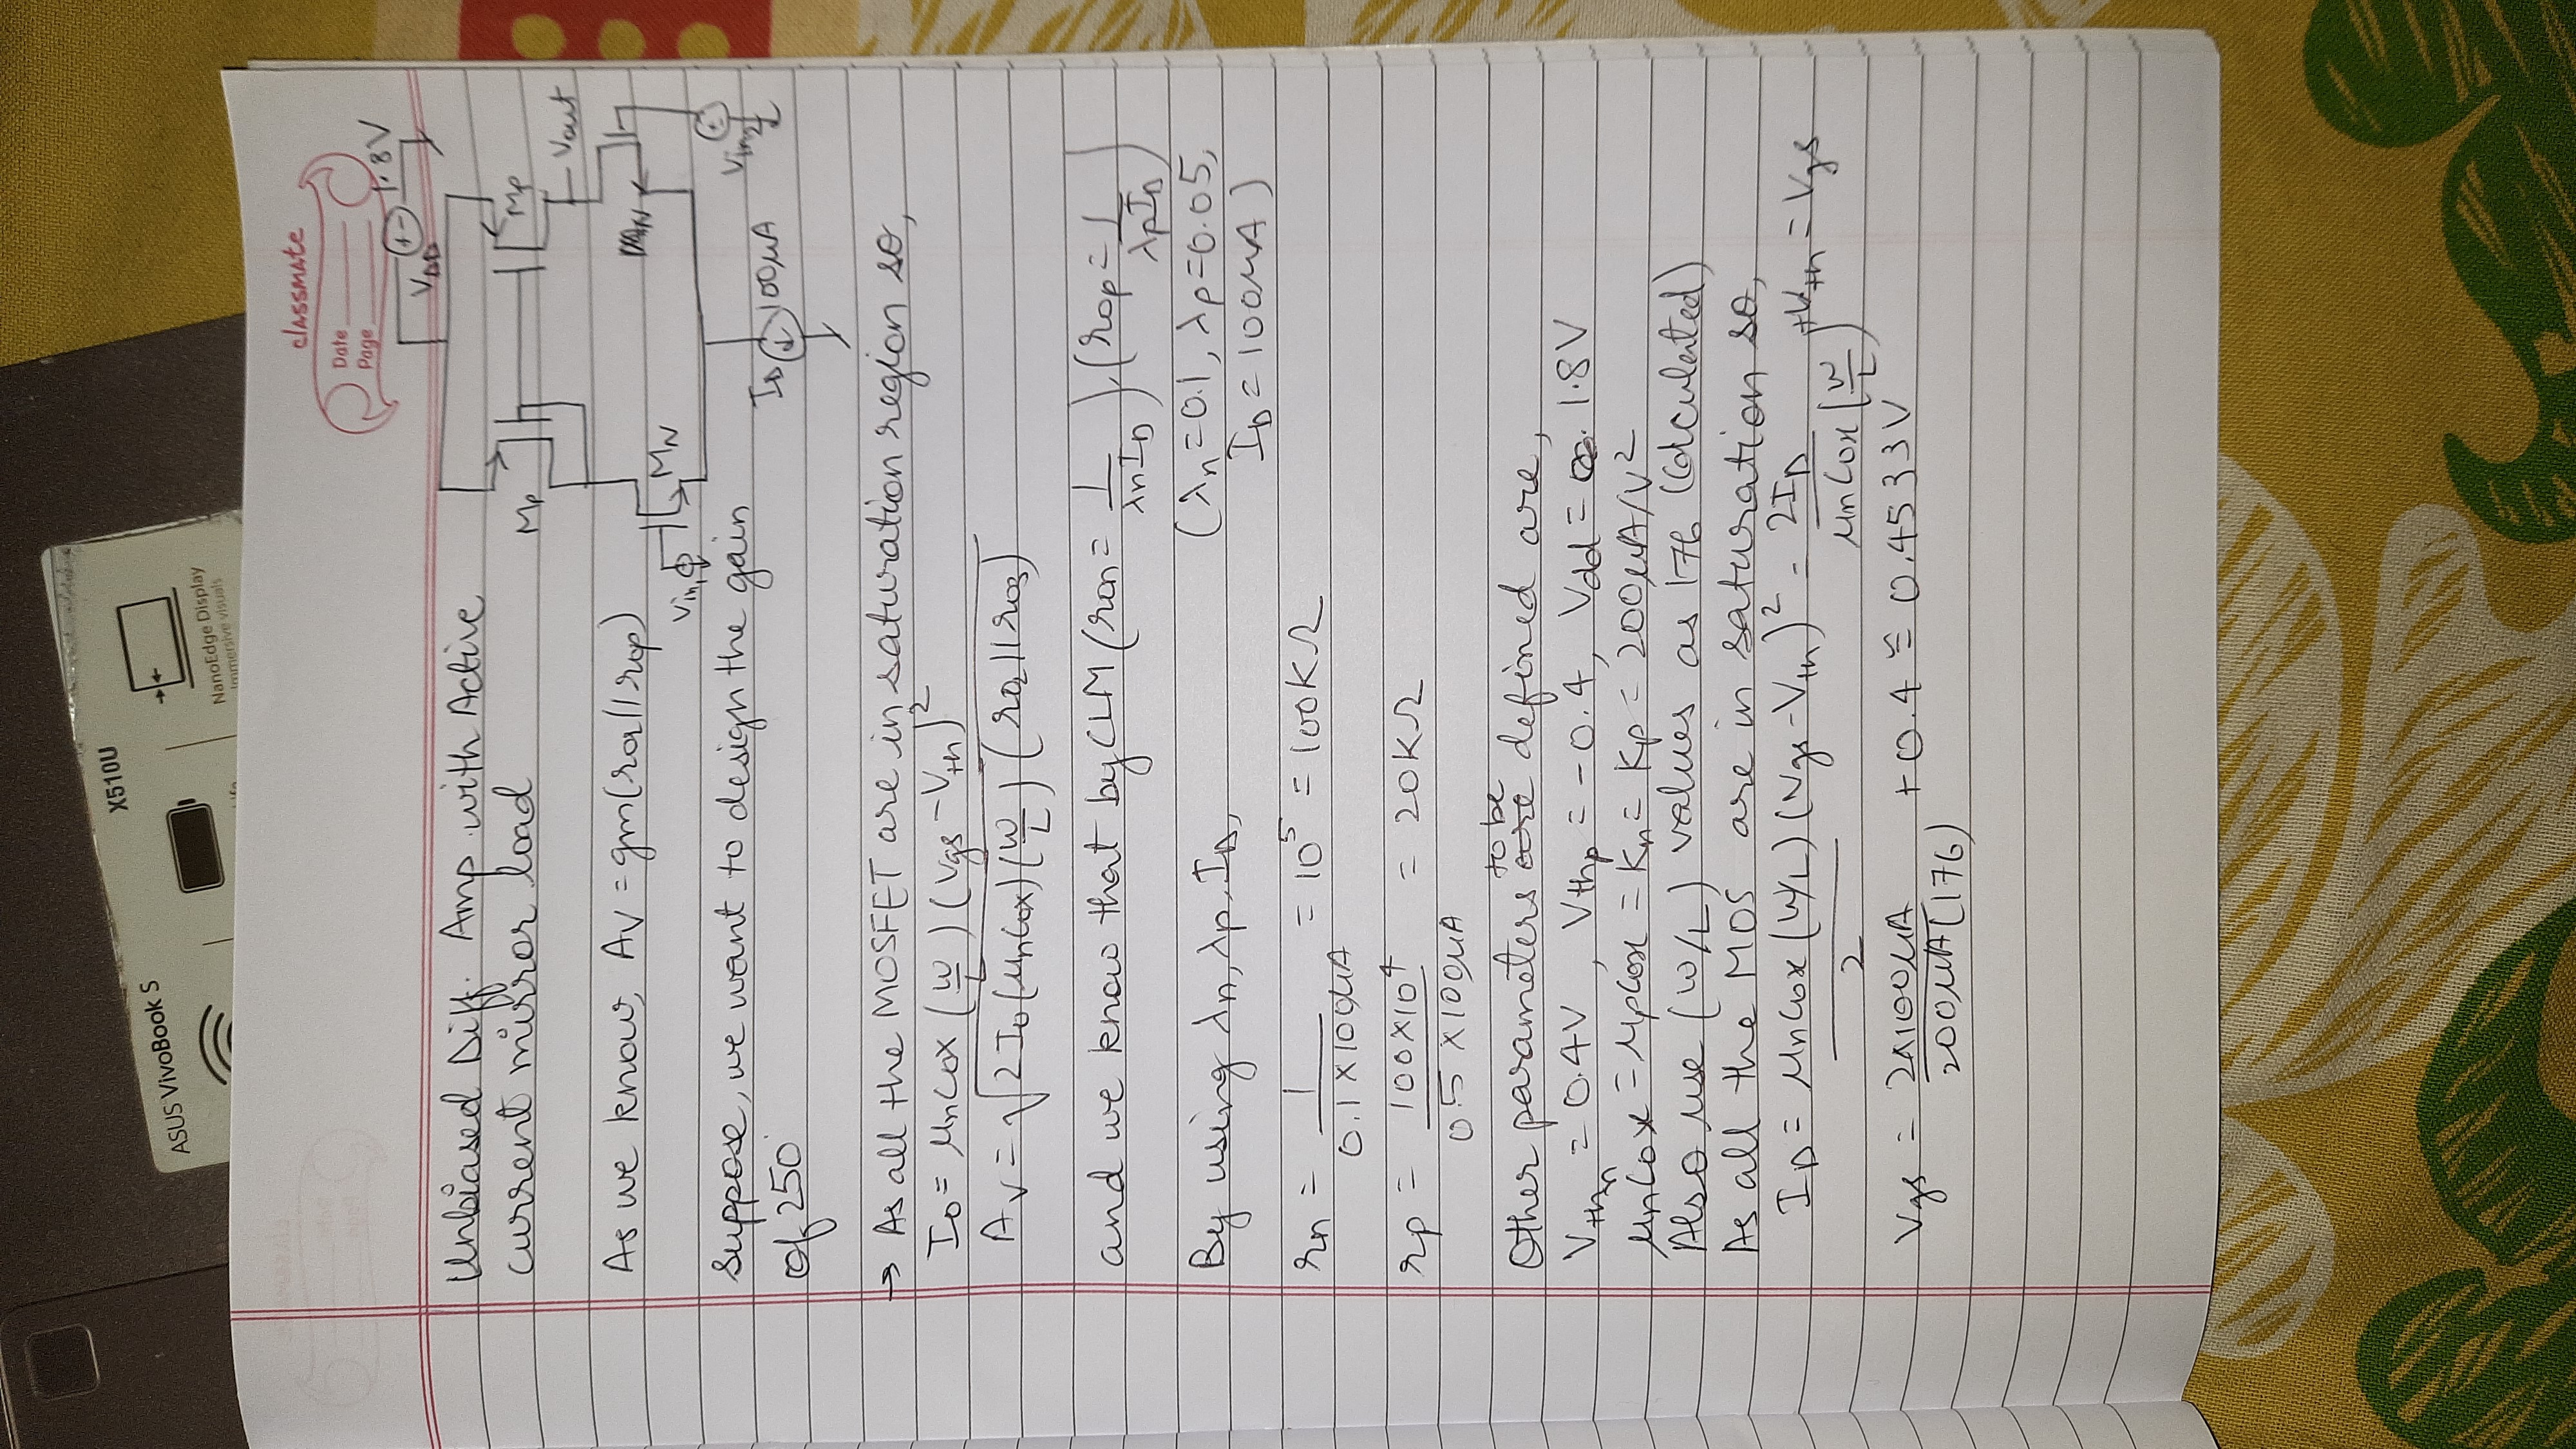 X510U
ASUS VivoBook S
NanoEdge Display
Immersive visuals
classmate
Date
Page
1.8V
VDD
Unbiased Diff. Amp with Active
current mirror load
Mp
Mp
Vout
As we know, Av = gm(ro2||rop)
MN
MN
Vin1
Vin2
Suppose, we want to design the gain
of 250
ID 100μA
→ As all the MOSFET are in saturation region so,
ID = μnCox (W/L) (Vgs - Vth)²
Av = √2ID(μnCox)(W/L) (ro2||ro3)
and we know that by CLM (ron = 1/λnID), (rop = 1/λpID)
By using λn, λp, ID,
(λn = 0.1, λp = 0.05,
ID = 100μA)
rn = 1/0.1×100μA = 10⁵ = 100KΩ
rp = 100×10⁴/0.5×100μA = 20KΩ
Other parameters to be defined are,
Vthn = 0.4V, Vthp = -0.4, Vdd = 1.8V
μnCox = μpCox = Kn = Kp = 200μA/V²
Also use (W/L) values as 176 (Calculated)
As all the MOS are in saturation so,
ID = μnCox (W/L) (Vgs - Vth)²/2 = 2ID/μnCox(W/L) + Vth = Vgs
Vgs = 2×100μA/200μA(176) + 0.4 ≈ 0.4533V